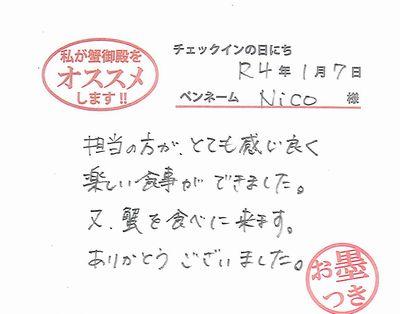 私が蟹御殿を
オススメ
します!!
チェックインの日にち
R4年1月7日
ペンネーム Nico 様
担当の方が、とても感じ良く
楽しい食事ができました。
又、蟹を食べに来ます。
ありがとうございました。
お墨
つき